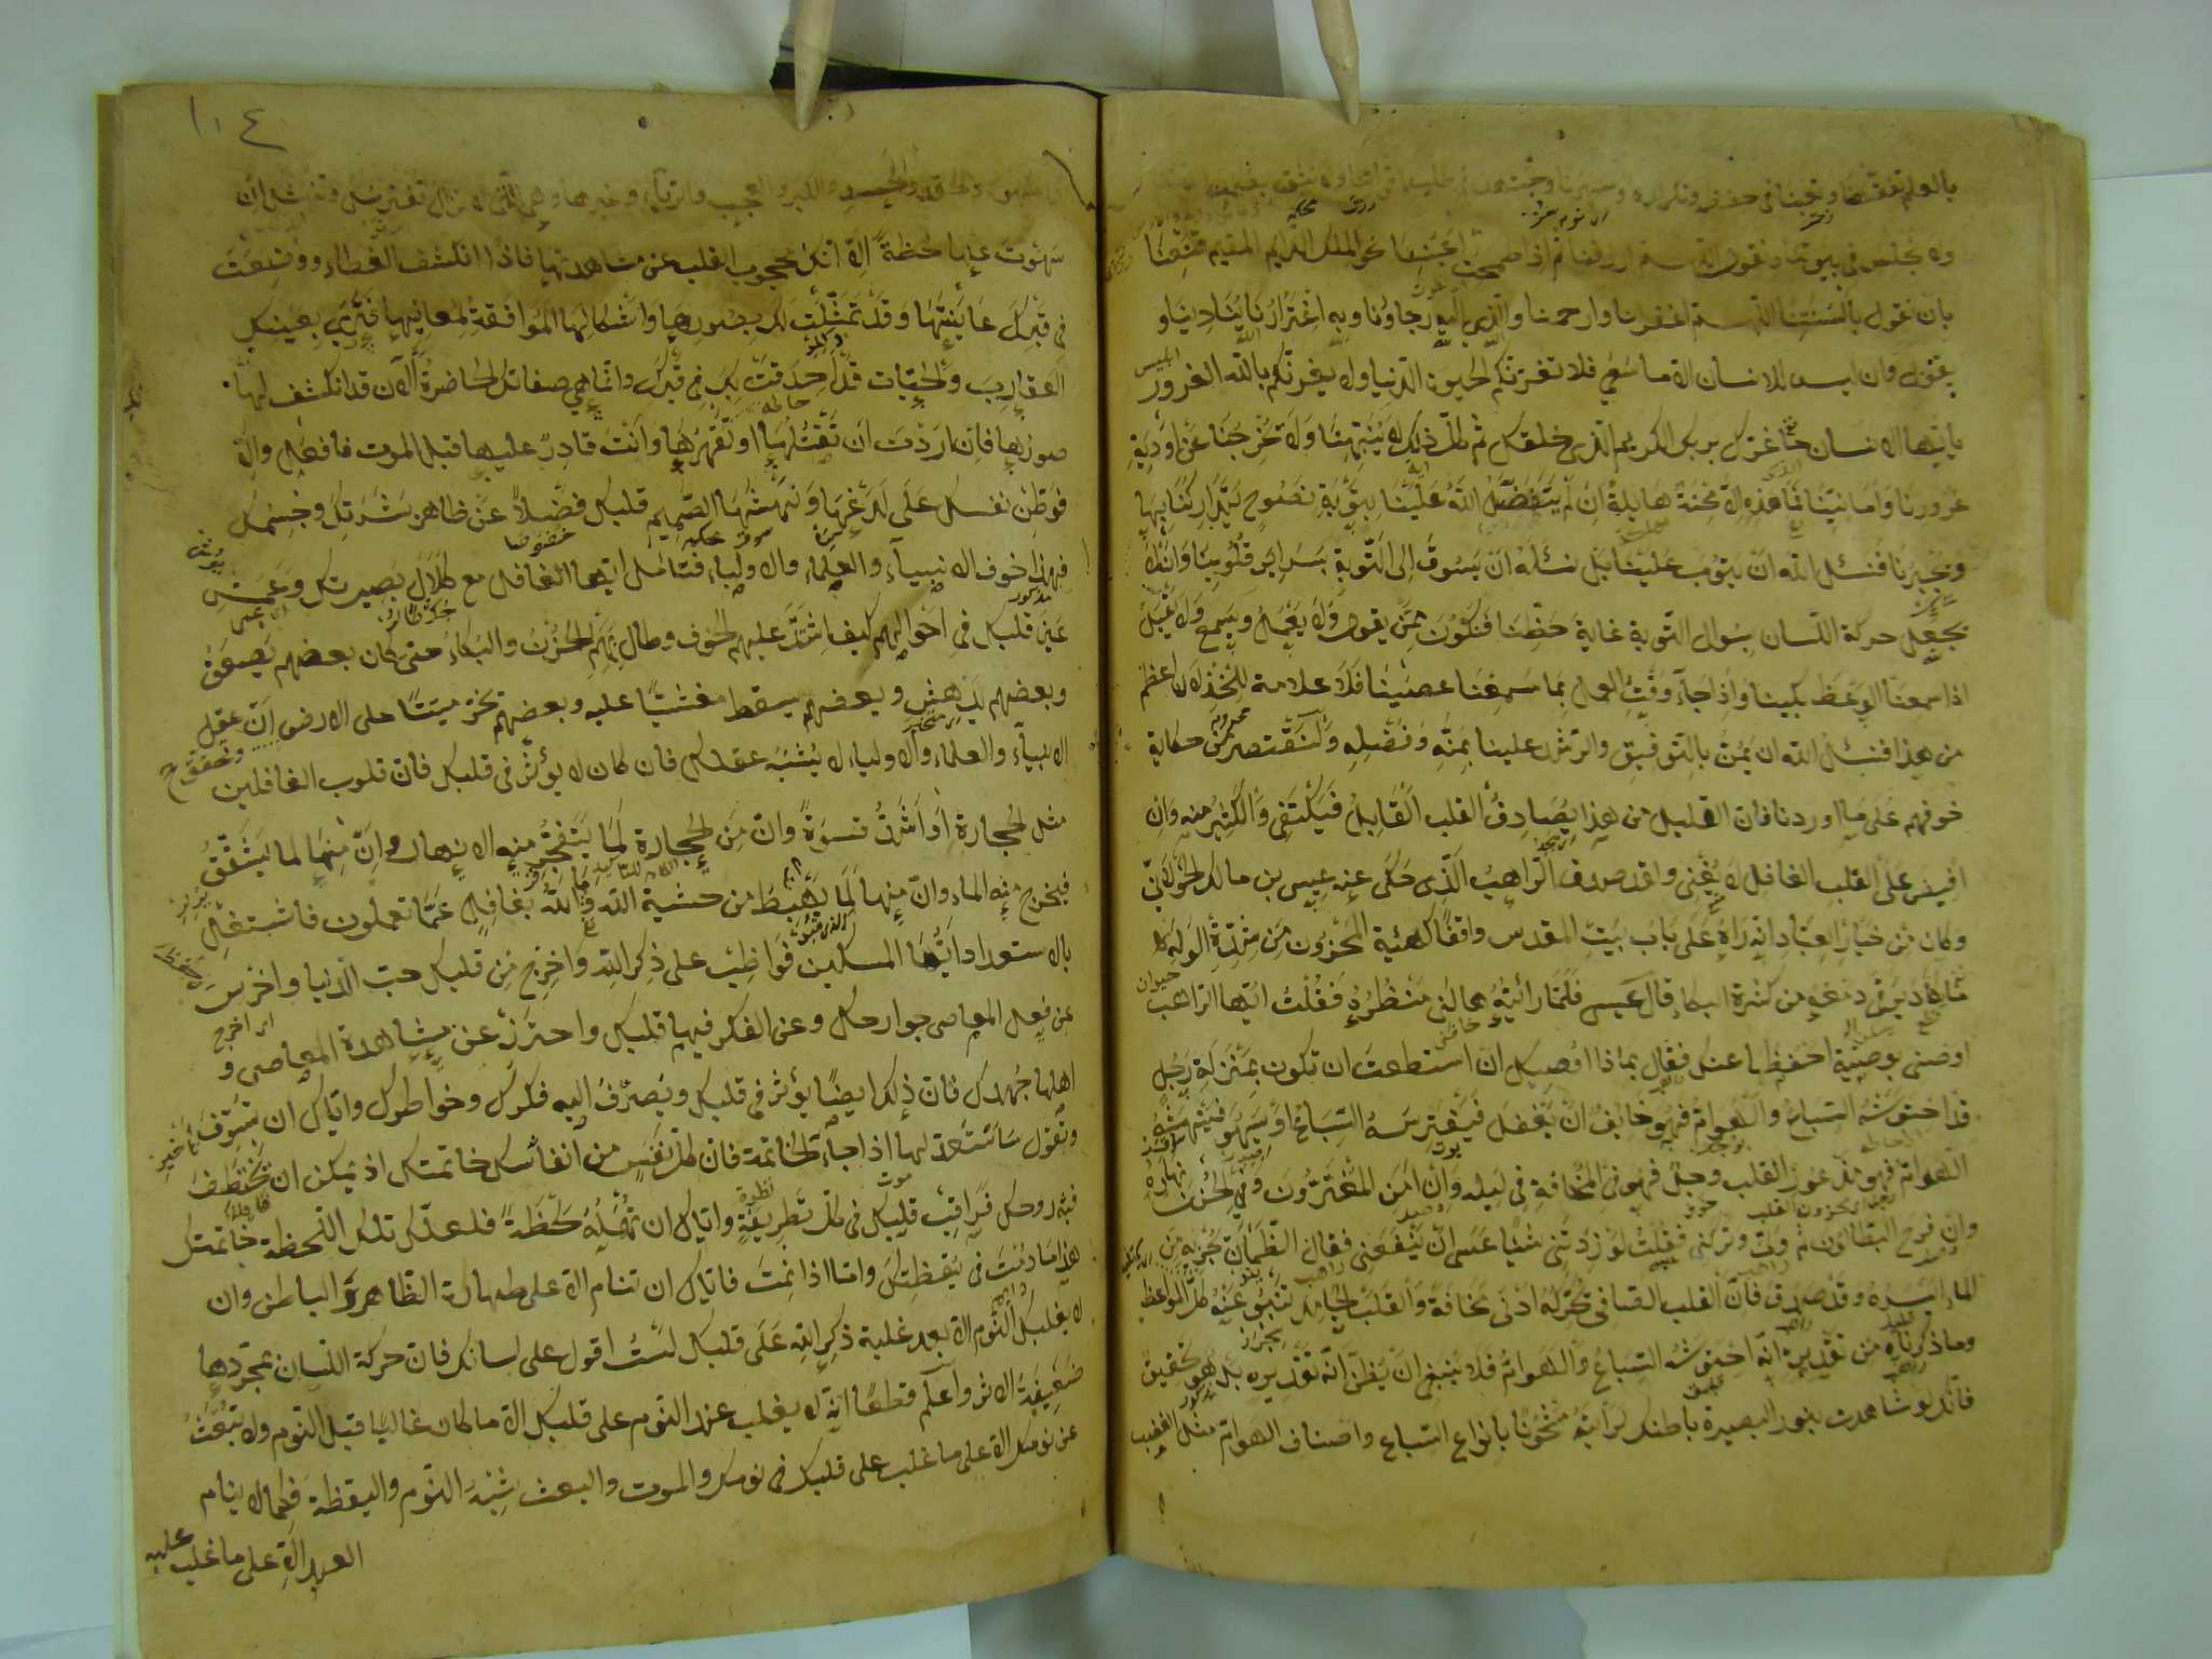 بالعلم تفقهنا وتعبنا في حفظه وتكراره وسهرنا
ولا نجلس في بيوتنا ونقول اللهم ارزقنا ثم اذا طمحت اعيننا نحو الملك الدايم المقيم قنعنا
بان نقول بالسنتنا اللهم اغفر لنا وارحمنا والذي اليه رجاؤنا وبه اغترارنا ينادينا و
يقول وان ليس للانسان الا ما سعى فلا تغرنكم الحيوة الدنيا ولا يغرنكم بالله الغرور
يا ايها الانسان ما غرك بربك الكريم الذي خلقك ثم كل ذلك لا ينبهنا ولا يخرجنا عن اودية
غرورنا وامانينا فما هذه الا محنة هايلة ان لم يتفضل الله علينا بتوبة نصوح يتداركنا بها
ويجيرنا فنسئل الله ان يتوب علينا بل نسئله ان يسوق الى التوبة سراير قلوبنا وان لا
يجعل حركة اللسان بسوال التوبة غاية حظنا فنكون ممن يقول ولا يعمل ويسمع ولا يقبل
اذا سمعنا الوعظ بكينا واذا جاء وقت العمل بما سمعنا عصينا فلا علامة للخذلان اعظم
من هذا فنسئل الله ان يمن بالتوفيق والرشد علينا بمنه وفضله ولنقتصر من حكاية
خوفهم على ما اوردنا فان القليل من هذا يصادف القلب القابل فيكتفي والكثير منه وان
افيض على القلب الغافل لا يغني ولقد صدق الراهب الذي حكى عنه عيسى بن مالك الخولاني
وكان من خيار العباد انه راه على باب بيت المقدس واقفا كهيئة المحزون من شدة الوله
ما يكاد يرقى دمعه من كثرة البكاء قال عيسى فلما رأيته هالني منظره فقلت ايها الراهب
اوصني بوصية احفظها عنك فقال بماذا اوصيك ان استطعت ان تكون بمنزلة رجل
قد احتوشته السباع والهوام فهو خايف ان يغفل فيفترسه السباع او يسهو فينهشه
الهوام فهو مذعور القلب وجل فهو في المخافة في ليله وان امن المغترون وفي الحزن نهاره
وان فرح البطالون ثم ولى وتركني فقلت لو زدتني شيئا عسى ان ينفعني فقال الظمان يجزيه من
الماء ايسره وقد صدق فان القلب الصافي تحركه ادنى مخافة والقلب الجامد تنبو عنه كل المواعظ
وما ذكرناه من تقديره انه احتوشته السباع والهوام فلا ينبغي ان يظن انه تقديره بل هو تحقيق
فانك لو شاهدت بنور البصيرة باطنك لرايته مشحونا بانواع السباع واصناف الهوام مثل الغضب
١٠٤
والحقد والحسد والكبر والعجب والرياء وغيرها وهي التي لا تزال تفترسك وتنهشك ان
سهوت عنها لحظة الا انك محجوب القلب عن مشاهدتها فاذا انكشف الغطاء ووضعت
في قبرك عاينتها وقد تمثلت لك بصورها واشكالها الموافقة لمعانيها فترى بعينك
العقارب والحيات قد احدقت بك في قبرك وانما هي صفاتك الحاضرة الان قد انكشف لها
صورها فان اردت ان تقتلها او تقهرها وانت قادر عليها قبل الموت فافعل والا
فوطن نفسك على لدغها ونهشها لصميم قلبك فضلا عن ظاهر بشرتك وجسمك
فهذا خوف الانبياء والعلماء والاولياء فتامل ايها الغافل مع كلال بصيرتك وعمش
عين قلبك في احوالهم كيف اشتد عليهم الخوف وطال بهم الحزن والبكاء حتى كان بعضهم يصعق
وبعضهم يدهش وبعضهم يسقط مغشيا عليه وبعضهم تخر ميتا على الارض ان عقل
الانبياء والعلماء والاولياء لا يشبه عقلك فان كان لا يؤثر في قلبك فان قلوب الغافلين
مثل الحجارة او اشد قسوة وان من الحجارة لما يتفجر منه الانهار وان منها لما يشقق
فيخرج منه الماء وان منها لما يهبط من خشية الله وما الله بغافل عما تعملون فاشتغل
بالاستعداد ايها المسكين فواظب على ذكر الله واخرج من قلبك حب الدنيا واخرس
عن فعل المعاصي جوارحك وعن الفكر فيها قلبك واحترز عن مشاهدة المعاصي و
اهلها جهدك فان ذلك ايضا يؤثر في قلبك ويصرف اليه فكرك وخواطرك واياك ان تسوف
وتقول ساستعد لها اذا جاءت الخاتمة فان كل نفس من انفاسك خاتمتك اذ يمكن ان تختطف
فيه روحك فراقب قلبك في كل تطريفة واياك ان تهمله لحظة فلعلك تلك اللحظة خاتمتك
هذا ما دمت في يقظتك واما اذا نمت فاياك ان تنام الا على طهارة الظاهر والباطن وان
لا يغلبك النوم الا بعد غلبة ذكر الله على قلبك لست اقول على لسانك فان حركة اللسان بمجردها
ضعيفة الاثر واعلم قطعا انه لا يغلب عند النوم على قلبك الا ما كان غالبا قبل النوم ولا تبعث
عن نومك الا على ما غلب على قلبك في نومك والموت والبعث شبه النوم واليقظة فكما لا ينام
العبد الا على ما غلب عليه